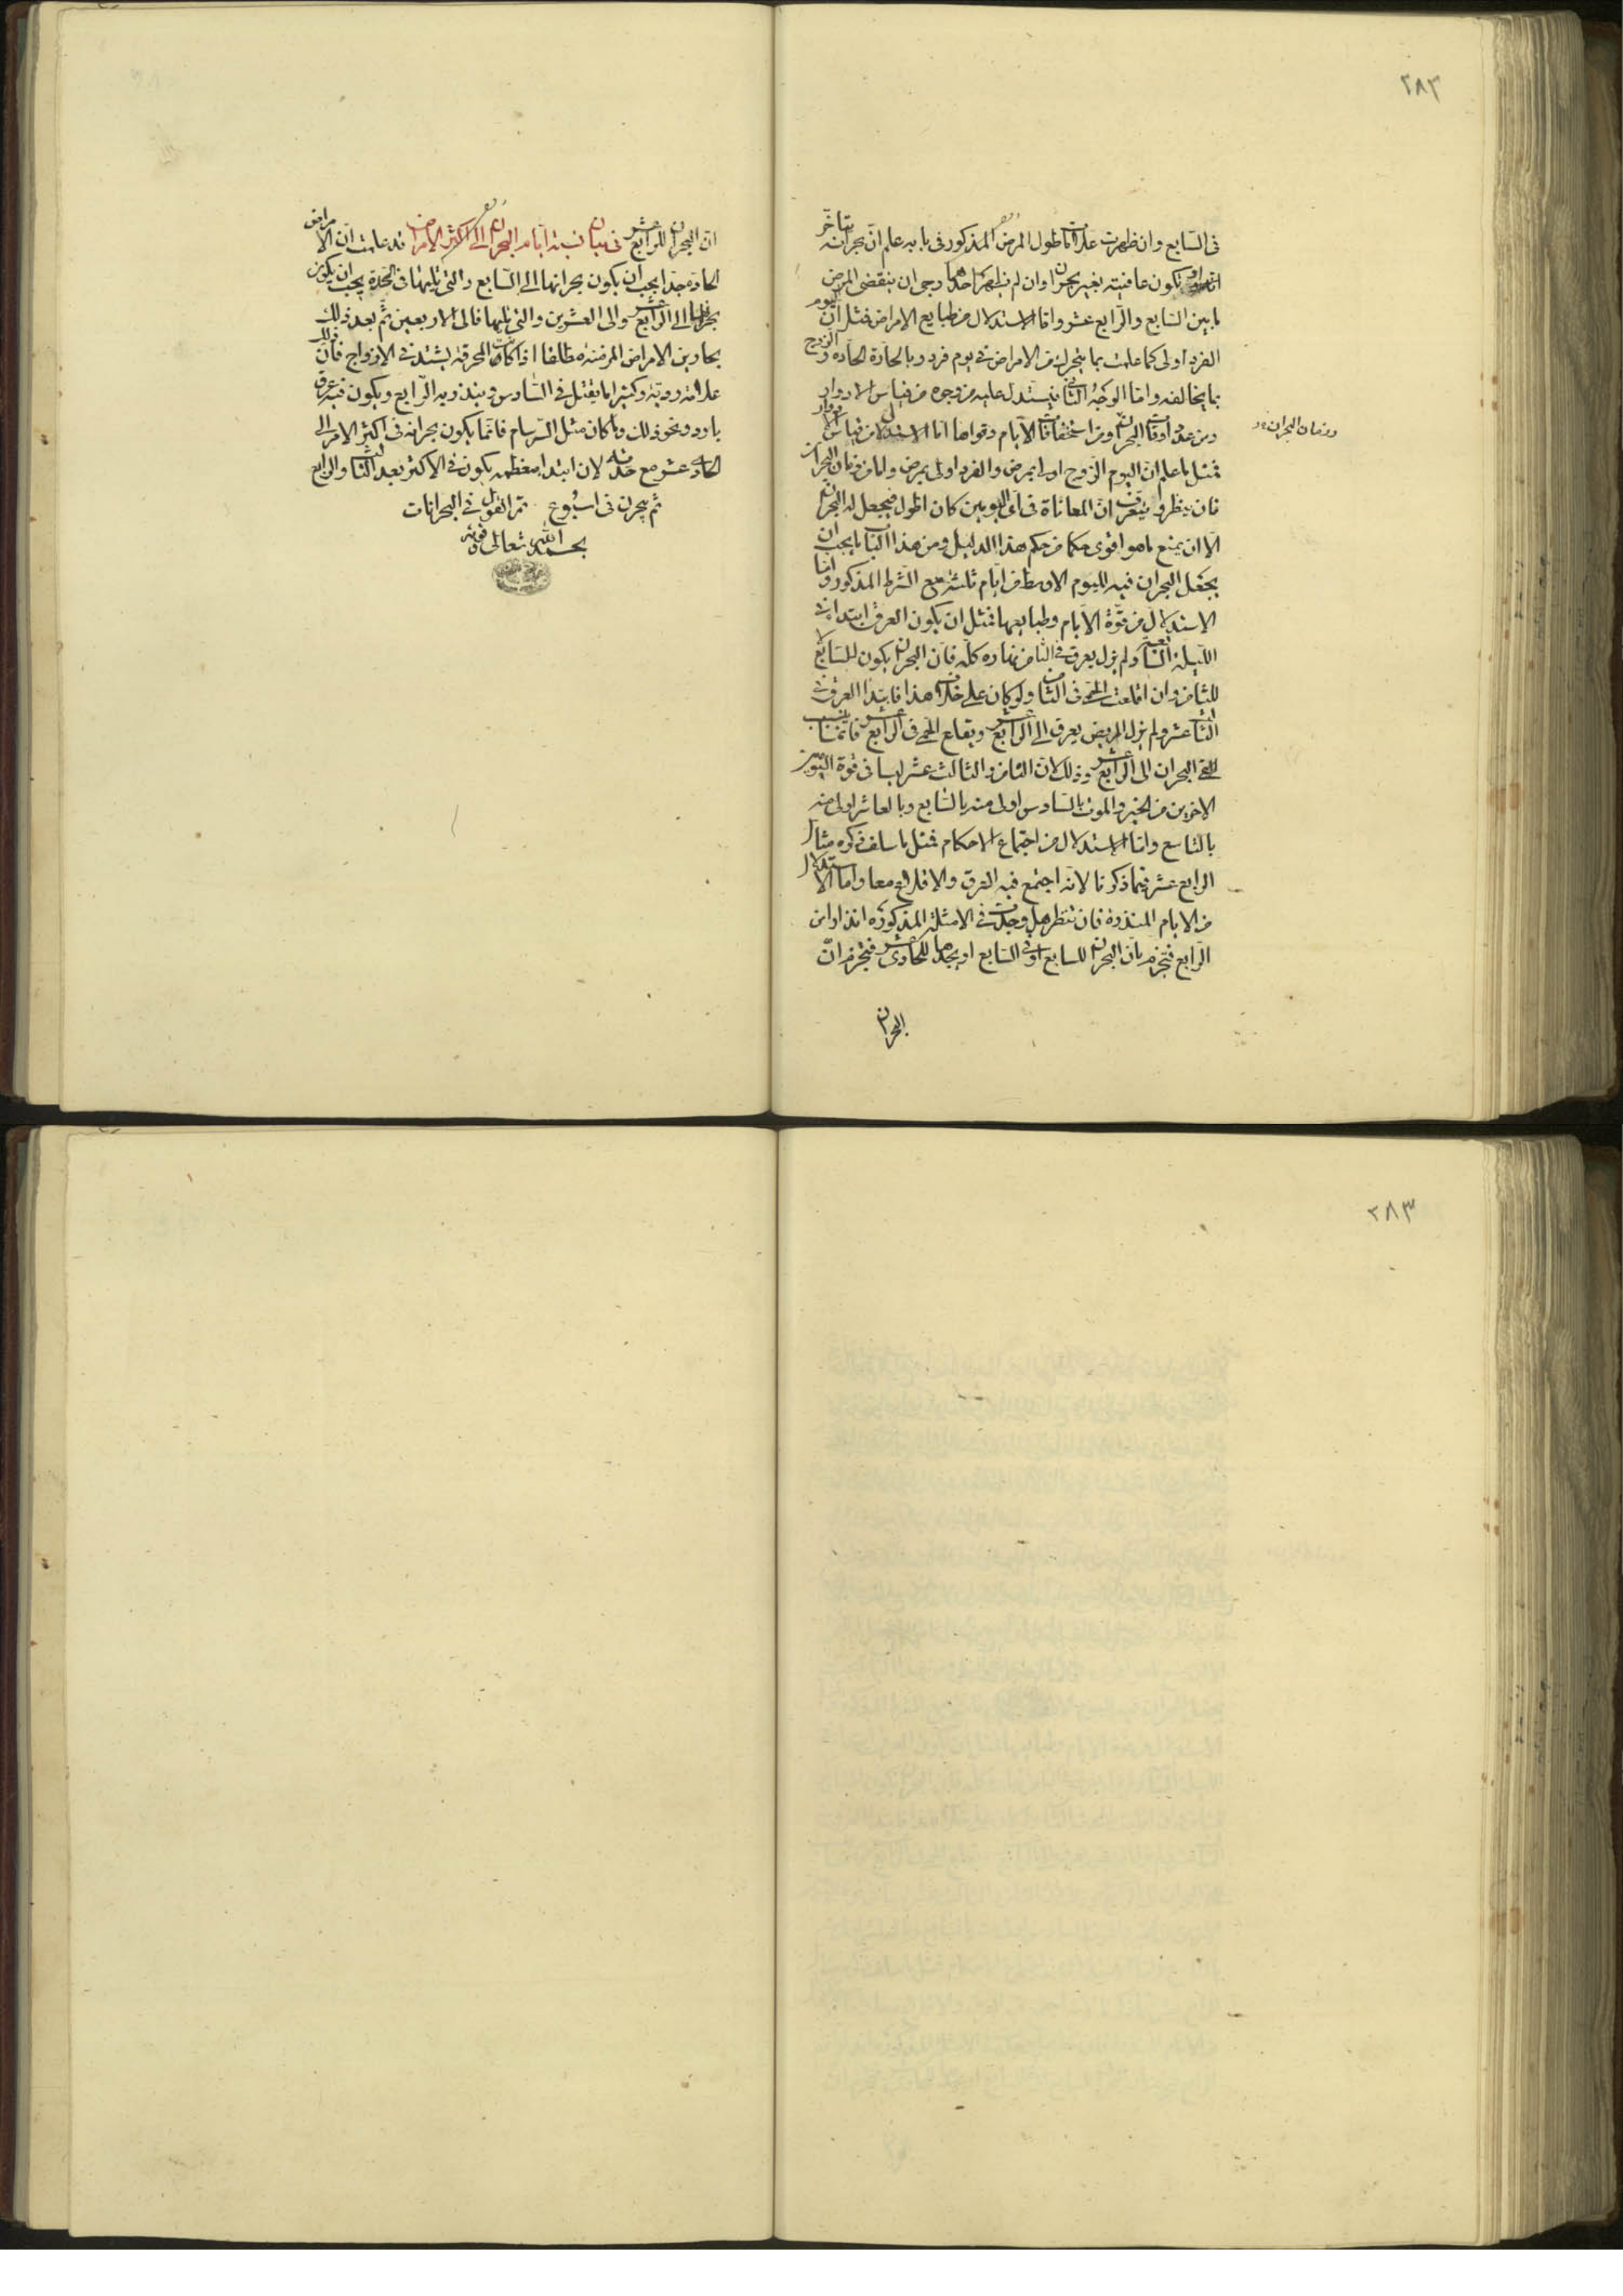 ٢٨٢
في السابع وان ظهرت علامات طول المرض المذكور في بابه علم ان بحرانه يتأخر
او تكون عافيته بغير بحران وان لم يظهر احدهما رجى ان ينقضي المرض
ما بين السابع والرابع عشر واما الاستدلال من طبايع الامراض فمثل ان اليوم
الفرد اولى كما علمت بما يتحرك من الامراض في يوم فرد وبالحادة الحادة والزوج
بما يخالفه واما الوجه الثاني فيستدل عليه من وجوه من قياس الادوار
ومن عدد اوقات البحران ومن استحقاقات الايام وقواها اما الاستدلال من قياس الادوار
ورزمان البحران
فمثل ما علم ان اليوم الزوج اولى بمرض والفرد اولى بمرض واما من زمان البحران
فان ينظر ويتعرف ان المعاناة في اى اليومين كان اطول فيجعل له البحران
الا ان يمنع ما هو اقوى حكما من حكم هذا الدليل ومن هذا الباب ما يجب ان
يجعل البحران فيه لليوم الاوسط من ايام ثلثة مع الشرط المذكور واما
الاستدلال من قوة الايام وطبايعها فمثل ان يكون العرق ابتدا في
الليلة السابعة ولم يزل يعرق في الثامن نهاره كله فان البحران يكون للسابع لا
للثامن وان اقلعت الحمى في الثامن ولو كان على خلاف هذا فابتدا العرق في
الثالث عشر ولم يزل المريض يعرق الى الرابع عشر ويقلع الحمى في الرابع عشر فانما ينسب
البحران الى الرابع عشر وذلك لان الثامن والثالث عشر ليسا في قوة اليومين
الاخرين من الخير والموت بالسادس اولى منه بالسابع وبالعاشر اولى منه
بالتاسع واما الاستدلال من اجتماع الاحكام فمثل ما سلف ذكره مثال
الرابع عشر فيما ذكرنا لانه اجتمع فيه العرق والاقلاع معا واما الاستدلال
من الايام المنذرة فان تنظر هل وجدت في الامثلة المذكورة انذارا من
الرابع فتجزم بان البحران للسابع او في السابع او يجدها للحادى عشر فيجزم ان
البحران
ان البحران للرابع عشر في بيان نسبة ايام البحران الى اكثر الامراض قد علمت ان الامراض
الحادة جدا يجب ان يكون بحرانها الى السابع والتي يليها في الحدة يجب ان يكون
بحرانها الى الرابع عشر والى العشرين والتي تليها فالى الاربعين ثم بعد ذلك
بحارين الامراض المزمنة مطلقا اذا كانت المحرقة يشتد في الازواج فان ذلك
علامة رديّة وكثيرا ما يقتل في السادس وينذر به الرابع ويكون فيه عرق
بارد ونحو ذلك وما كان مثل السرسام فانما يكون بحرانه في اكثر الامر الى
الحادى عشر مع حدته لان ابتدا معظمه يكون في الاكثر بعد الثالث والرابع
ثم يبحرن في اسبوع تم القول في البحرانات
بحمد الله تعالى وقوته
٢٨٣